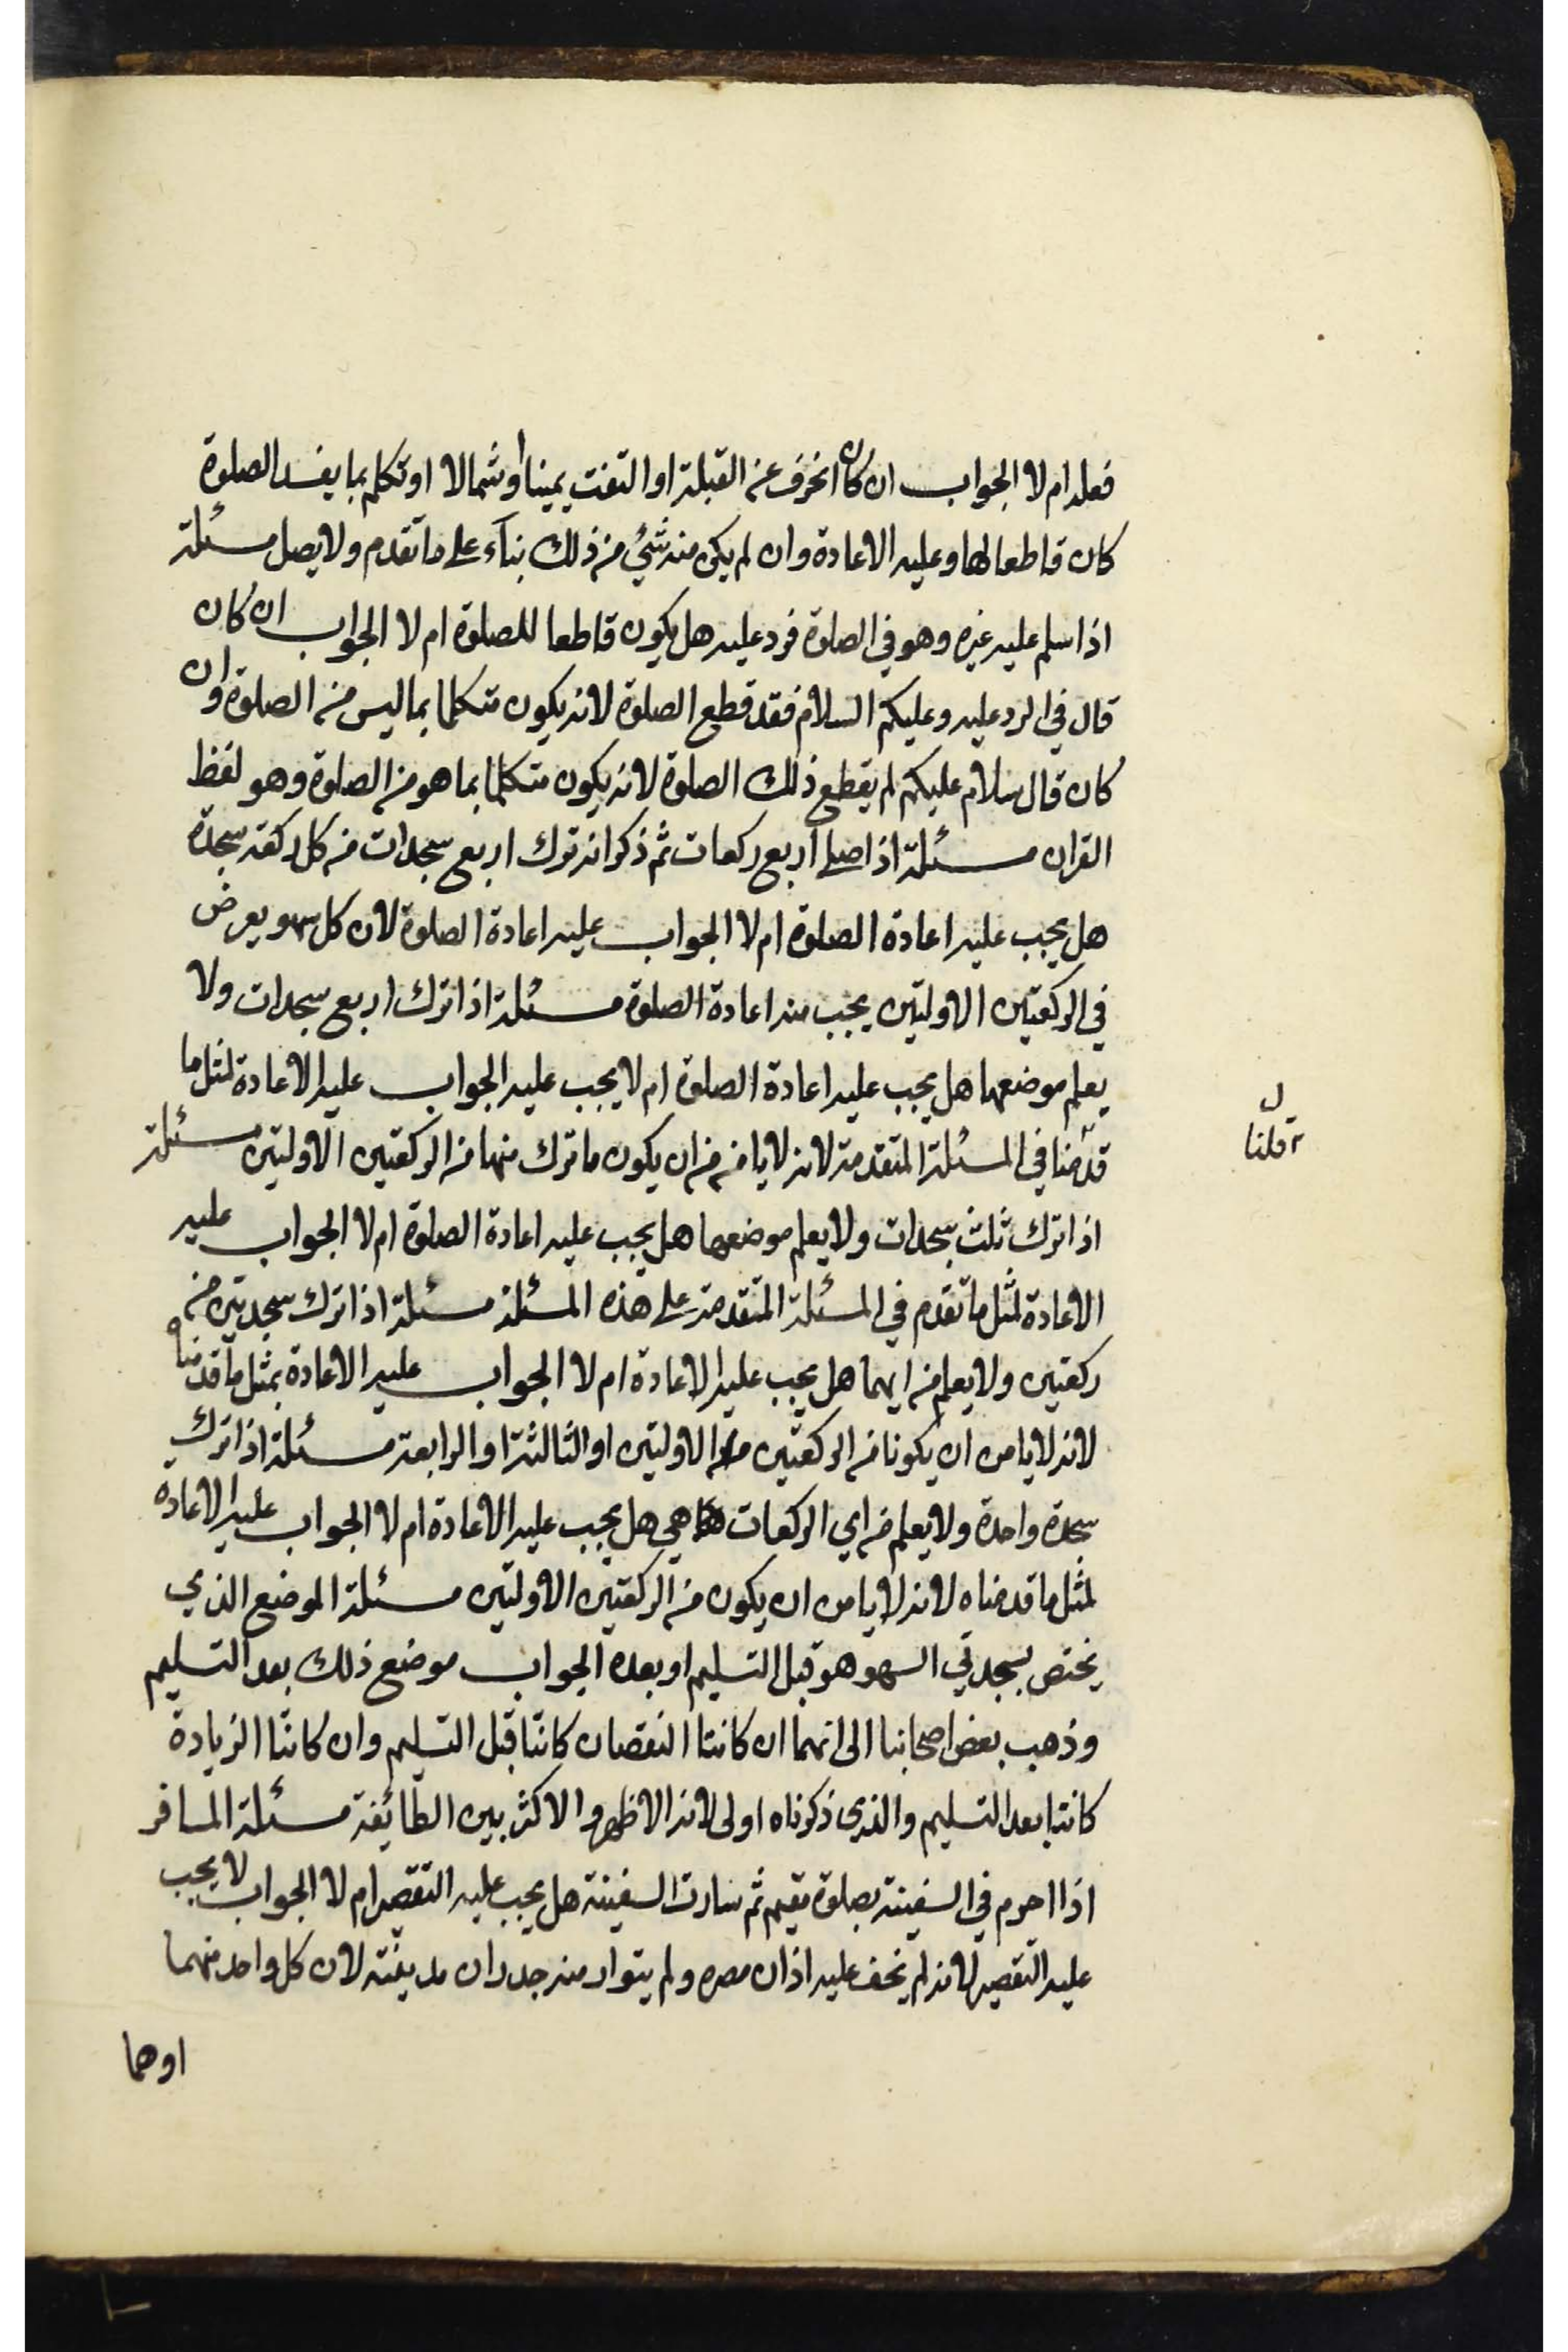 فعله ام لا الجواب ان كان انحرف عن القبلة او التفت يمينا او شمالا او تكلم بما يفسد الصلوة
كان قاطعا لها وعليه الاعادة وان لم يكن منه شئ من ذلك بناء على ما تقدم ولا يصل مسئلة
اذا سلم عليه غيره وهو في الصلوة فرد عليه هل يكون قاطعا للصلوة ام لا الجواب ان كان
قال في الرد عليه وعليكم السلام فقد قطع الصلوة لانه يكون متكلما بما ليس من الصلوة وان
كان قال سلام عليكم لم يقطع ذلك الصلوة لانه يكون متكلما بما هو من الصلوة وهو لفظ
القران مسئلة اذا صلى اربع ركعات ثم ذكر انه ترك اربع سجدات من كل ركعة سجدة
هل يجب عليه اعادة الصلوة ام لا الجواب عليه اعادة الصلوة لان كل سهو يعرض
في الركعتين الاولتين يجب منه اعادة الصلوة مسئلة اذا ترك اربع سجدات ولا
يعلم موضعها هل يجب عليه اعادة الصلوة ام لا يجب عليه الجواب عليه الاعادة لمثل ما
قدمنا في المسئلة المتقدمة لانه لا يامن من ان يكون ما ترك منها من الركعتين الاولتين مسئلة
ل
قلنا
اذا ترك ثلث سجدات ولا يعلم موضعها هل يجب عليه اعادة الصلوة ام لا الجواب عليه
الاعادة لمثل ما تقدم في المسئلة المتقدمة على هذه المسئلة مسئلة اذا ترك سجدتين من
ركعتين ولا يعلم من ايهما هل يجب عليه الاعادة ام لا الجواب عليه الاعادة بمثل ما قدمناه
لانه لا يامن ان يكونا من الركعتين الاولتين او الثالثة او الرابعة مسئلة اذا ترك
سجدة واحدة ولا يعلم من اي الركعات هي هل يجب عليه الاعادة ام لا الجواب عليه الاعاده
لمثل ما قدمناه لانه لا يامن ان يكون من الركعتين الاولتين مسئلة الموضع الذي
يختص بسجدتي السهو هو قبل التسليم او بعده الجواب موضع ذلك بعد التسليم
وذهب بعض اصحابنا الى انهما ان كانتا النقصان كانتا قبل التسليم وان كانتا الزيادة
كانتا بعد التسليم والذي ذكرناه اولى لانه الاظهر والاكثر بين الطائفة مسئلة المسافر
اذا احرم في السفينة بصلوة مقيم ثم سارت السفينة هل يجب عليه التقصير ام لا الجواب لا يجب
عليه التقصير لانه لم يخف عليه اذان مصره ولم يتوار منه جدران مدينته لان كل واحد منهما
اوهما